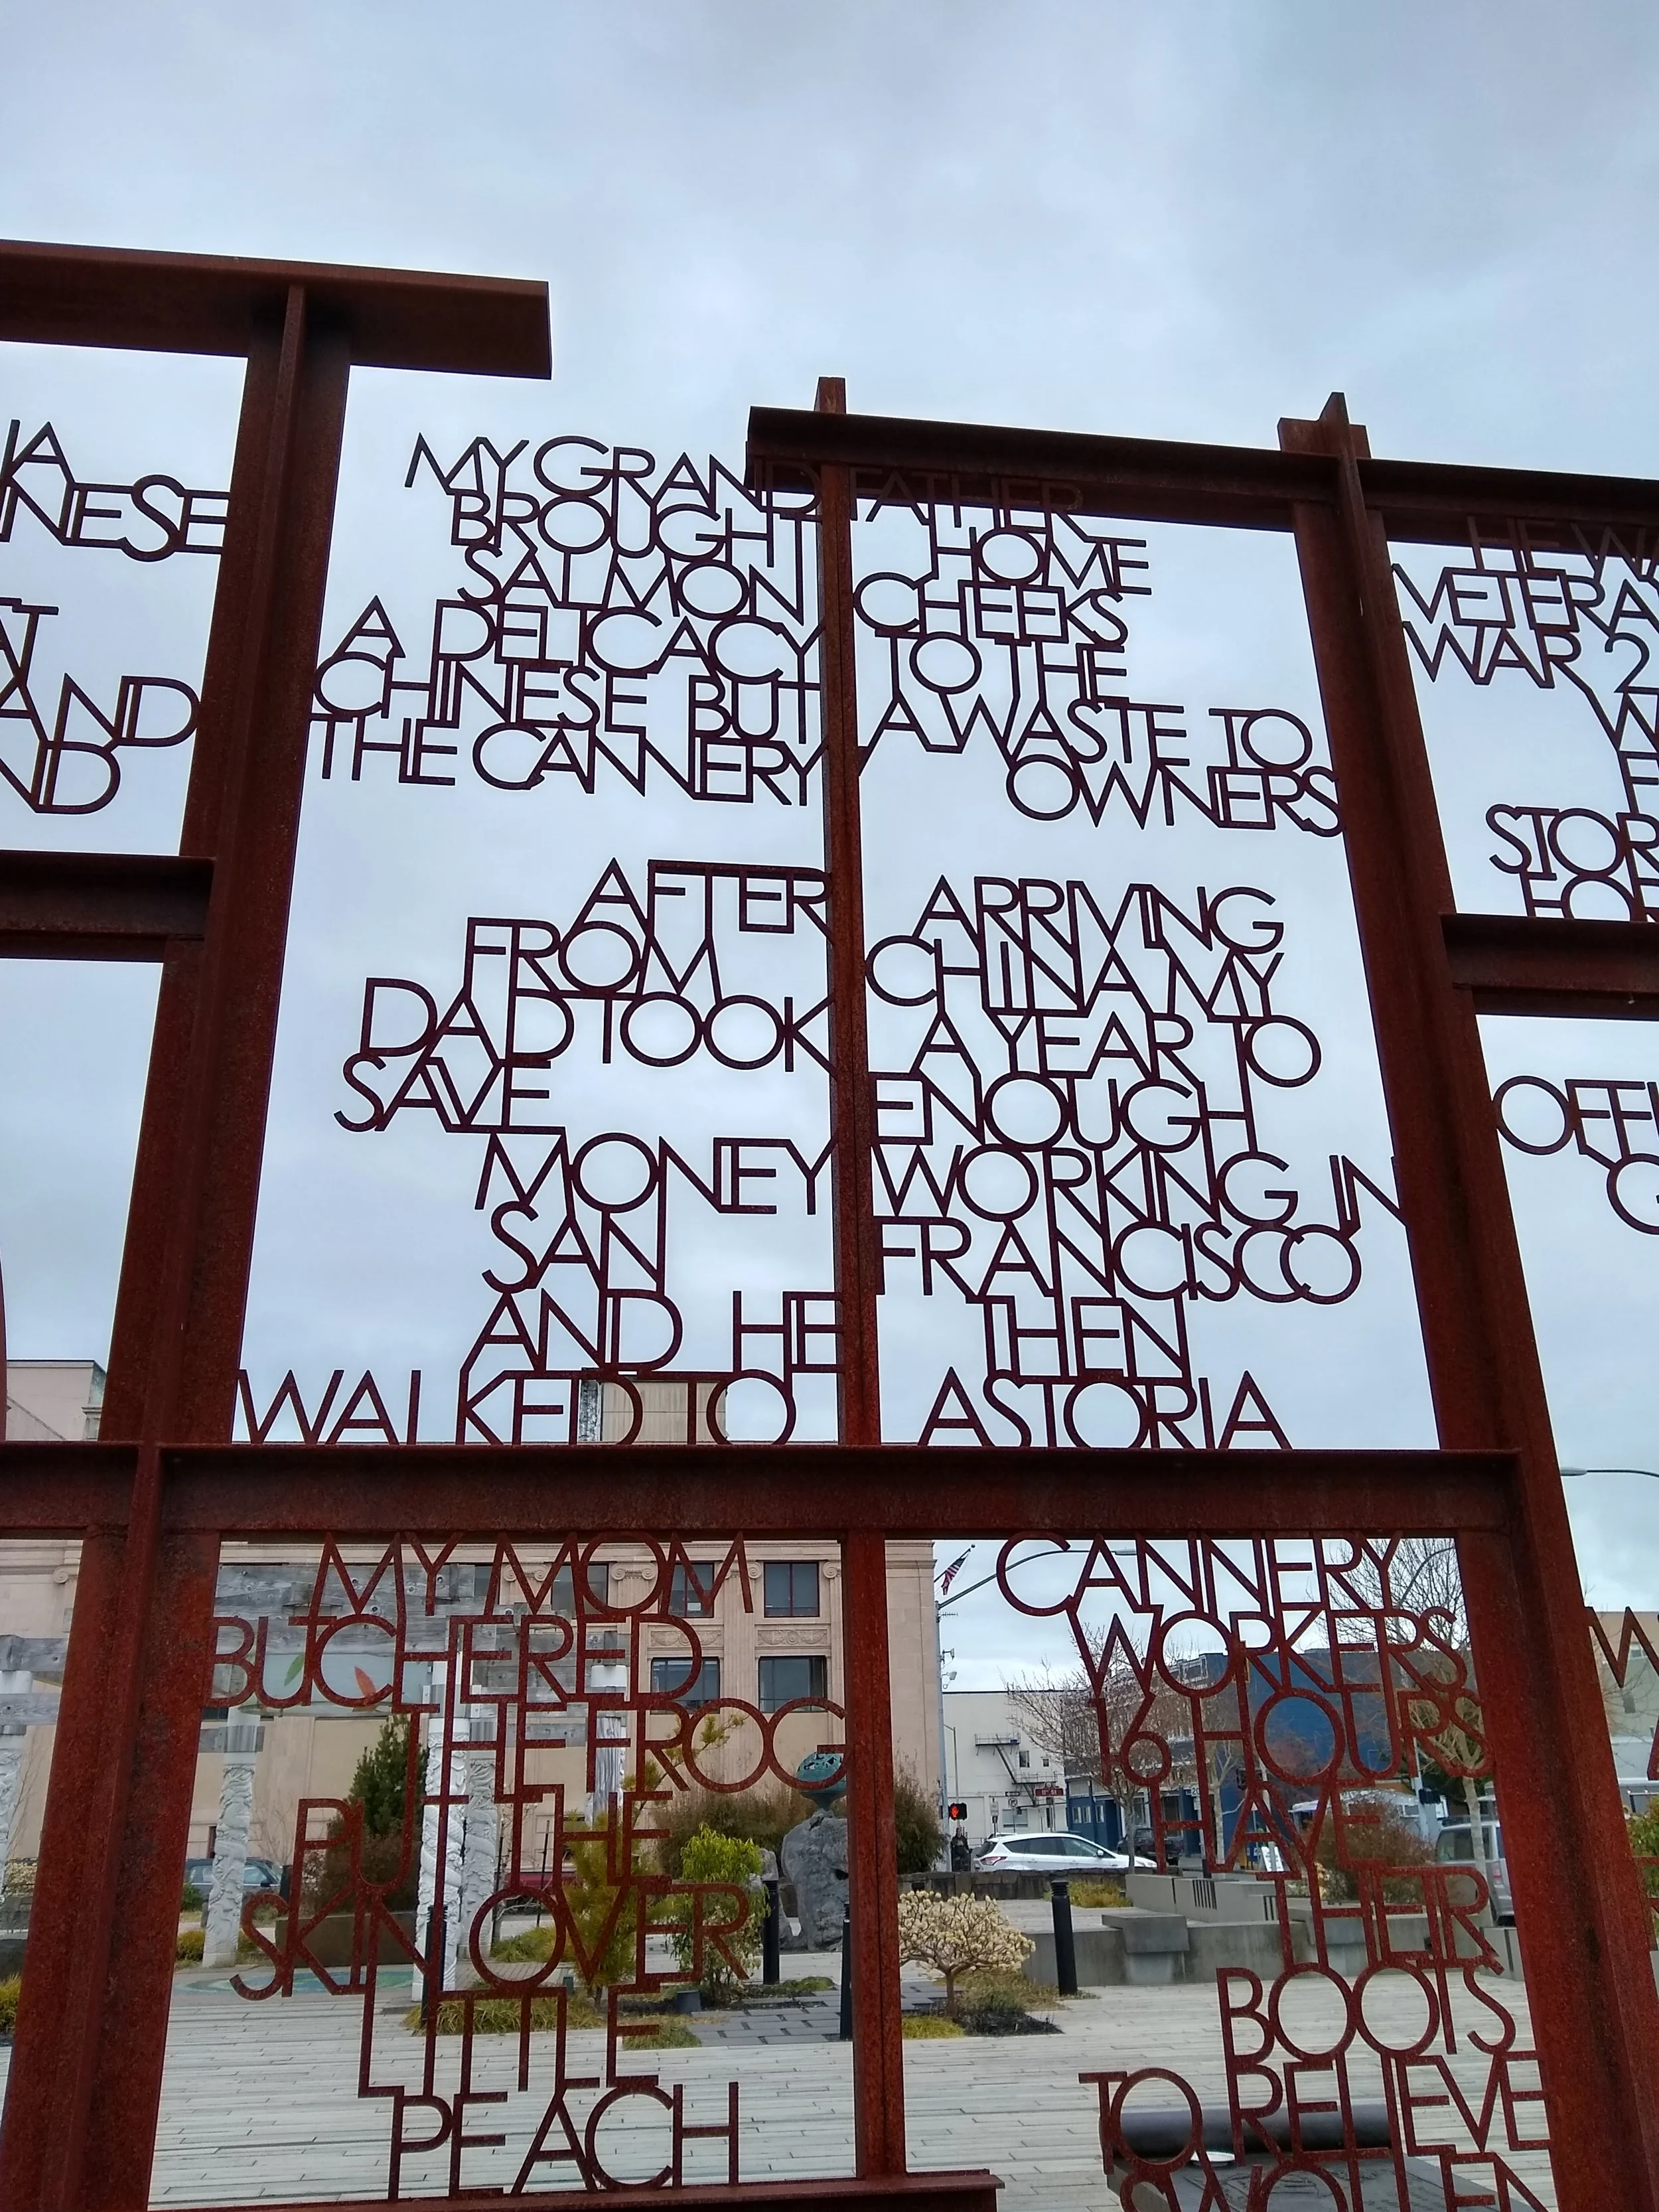 IA
NESE
AND
ND
MY GRANDFATHER
BROUGHT HOME
SALMON CHEEKS
A DELICACY TO THE
CHINESE BUT A WASTE TO
THE CANNERY OWNERS
AFTER ARRIVING
FROM CHINA MY
DAD TOOK A YEAR TO
SAVE ENOUGH
MONEY WORKING IN
SAN FRANCISCO
AND HE THEN
WALKED TO ASTORIA
MY MOM
BUTCHERED
THE FROG
PUT THE
SKIN OVER
LITTLE
PEACH
CANNERY
WORKERS
16 HOURS
HAVE
THEIR
BOOTS
TO RELIEVE
SWOLLEN
HE WA
VETERA
WAR 2
STOR
OFFI